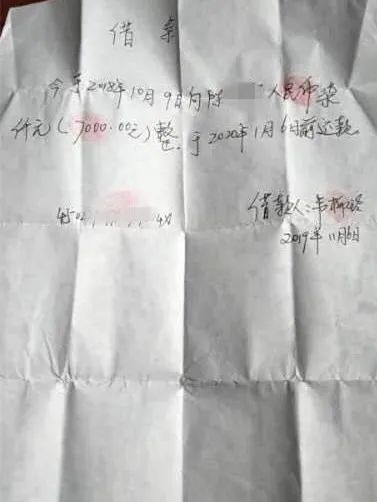 借条
今于2018年10月9日向陈 人民币柒
仟元(7000.00元)整.于2020年1月6日前还款.
借款人:韦
2019年11月6日